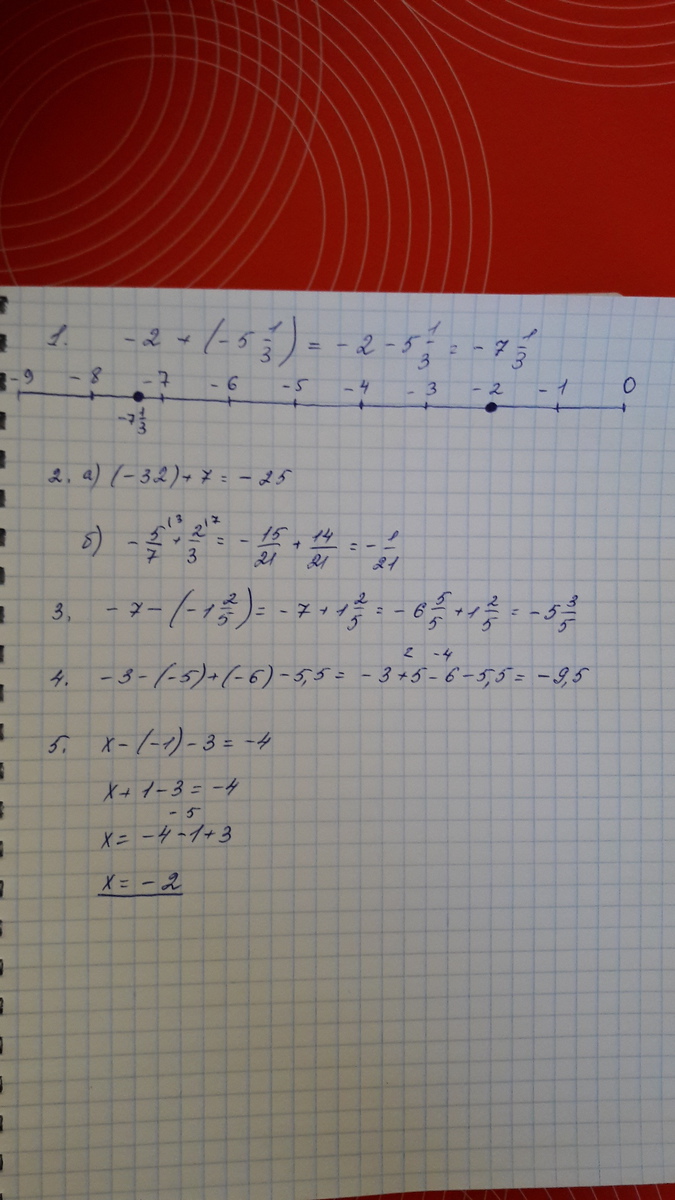 1. -2 + (-5 1/3) = -2 - 5 1/3 = -7 1/3
-9 -8 -7 -6 -5 -4 -3 -2 -1 0
-7 1/3
2. а) (-32) + 7 = -25
б) -5/7 \3 + 2/3 \7 = -15/21 + 14/21 = -1/21
3. -7 - (-1 2/5) = -7 + 1 2/5 = -6 5/5 + 1 2/5 = -5 3/5
2 -4
4. -3 - (-5) + (-6) - 5,5 = -3 + 5 - 6 - 5,5 = -9,5
5. x - (-1) - 3 = -4
x + 1 - 3 = -4
-5
x = -4 - 1 + 3
x = -2